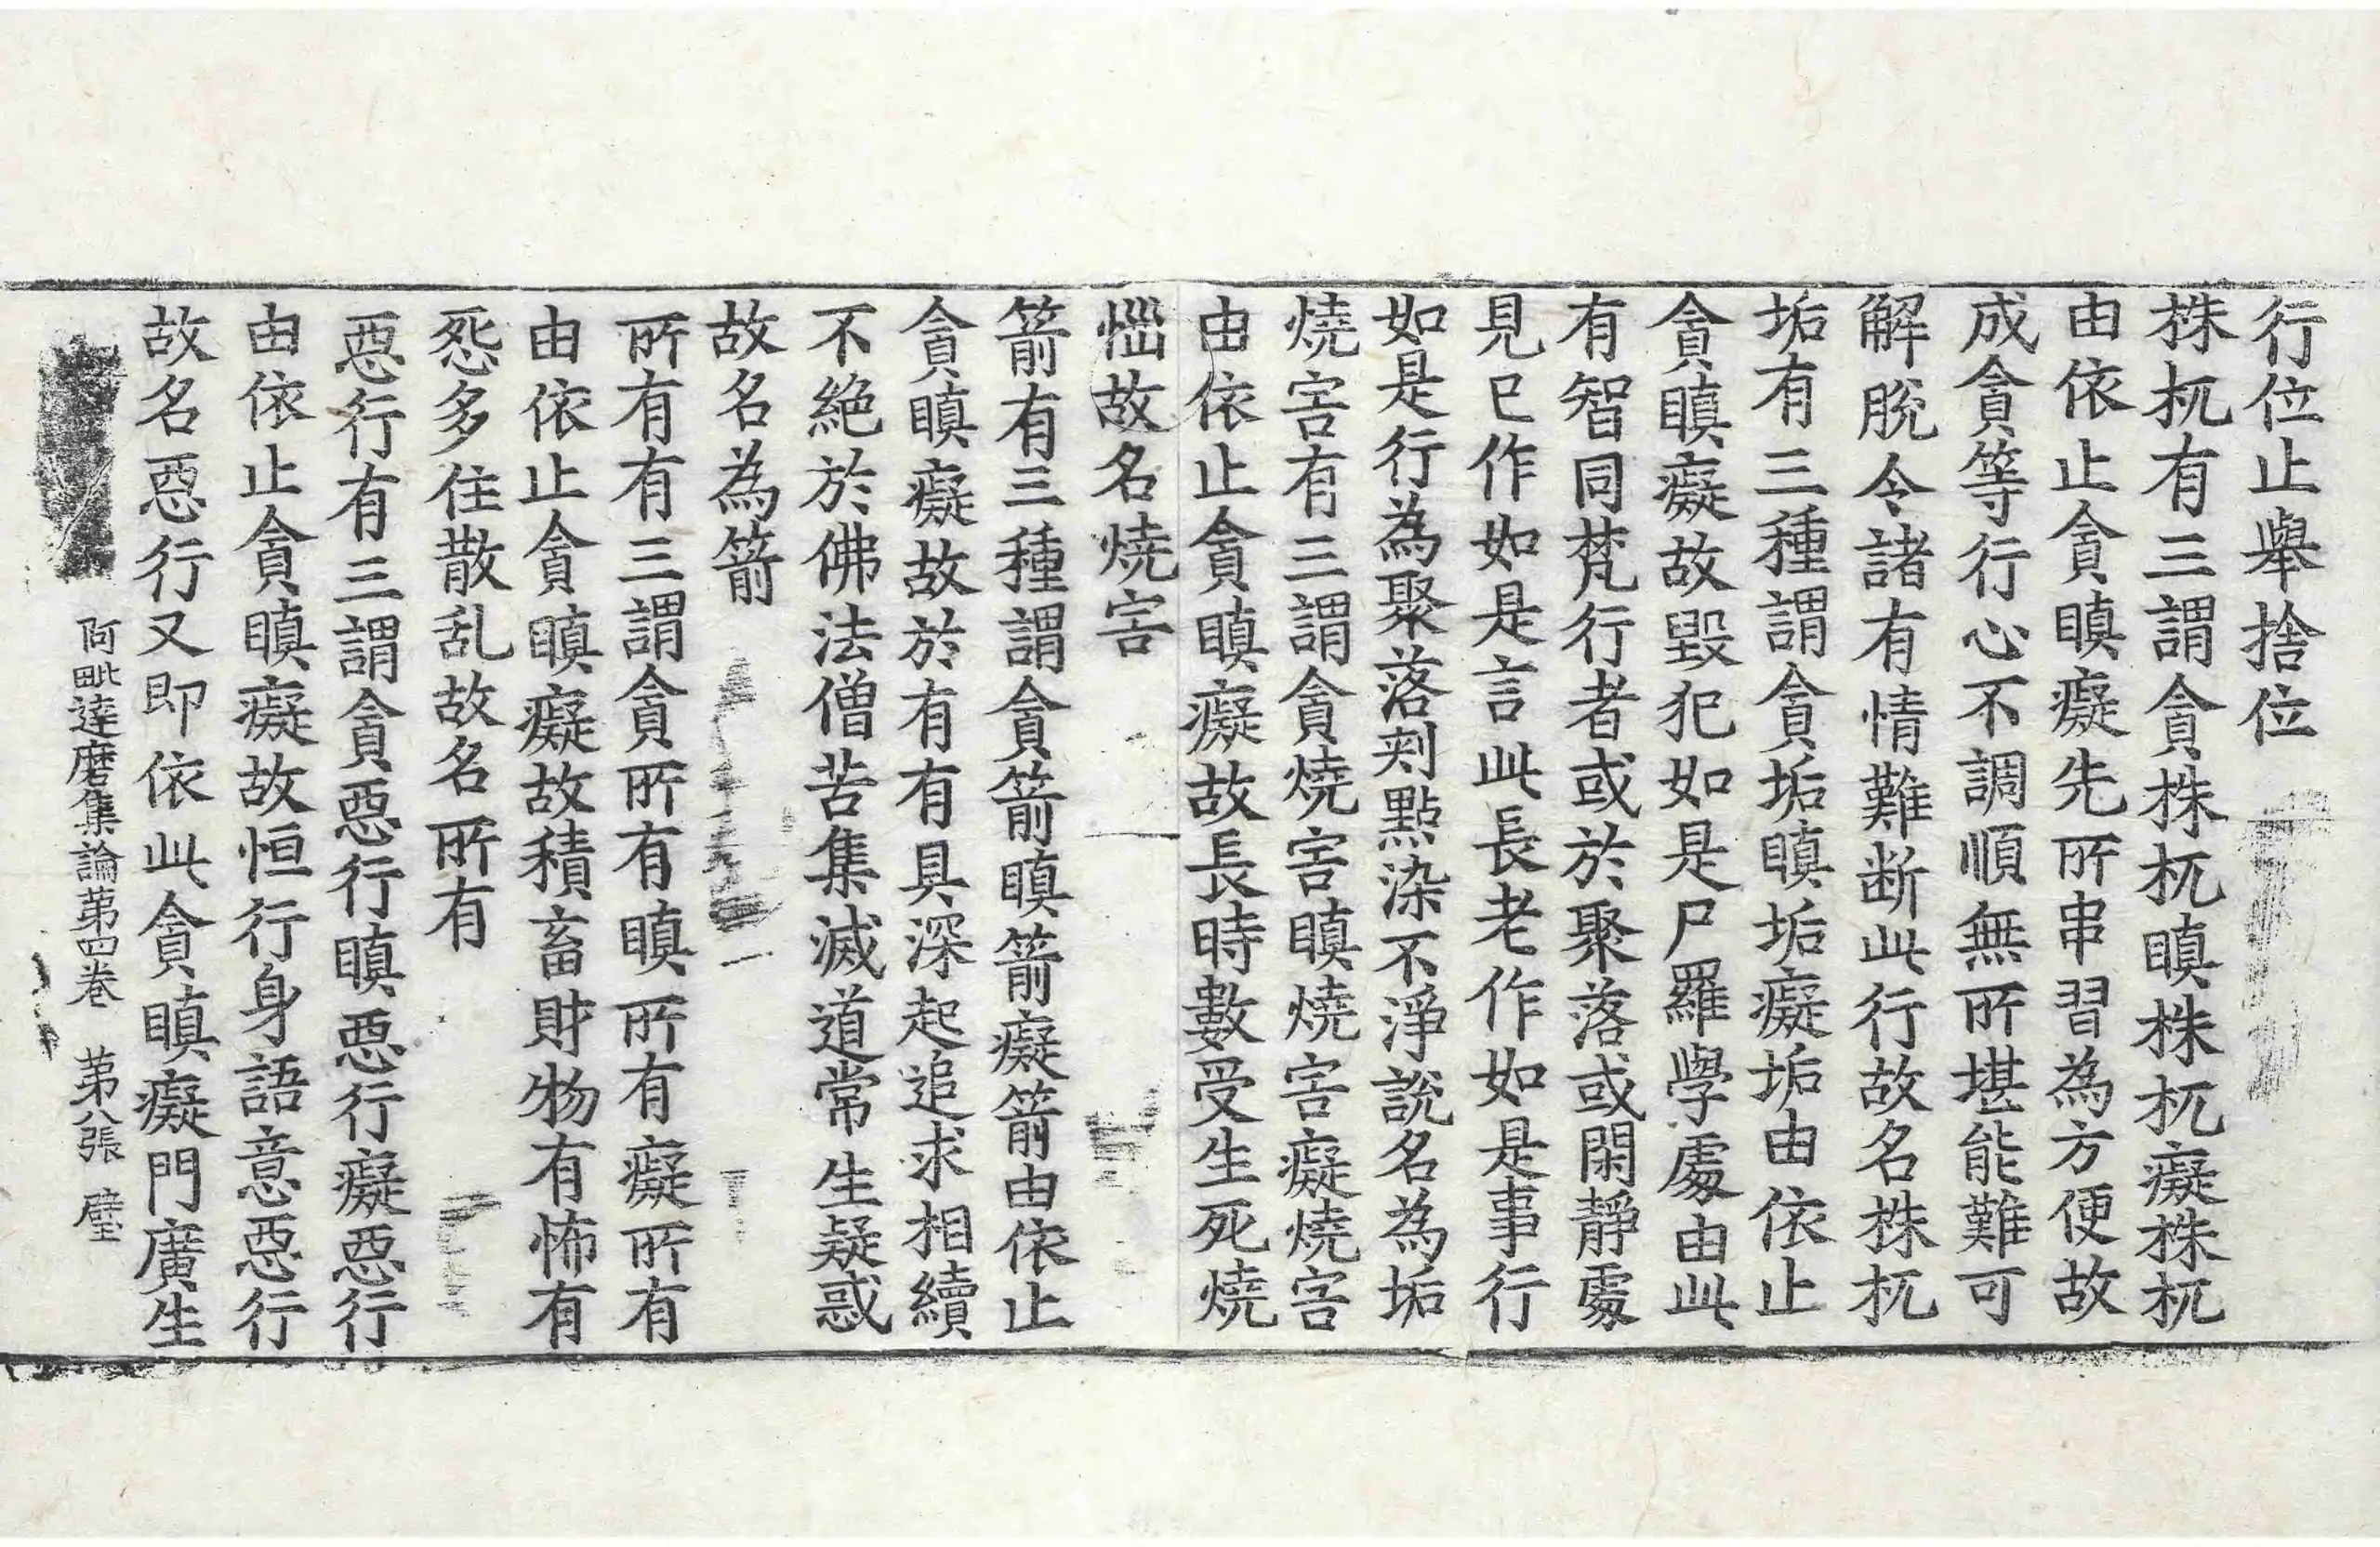 行位止舉捨位
株杌有三謂貪株杌瞋株杌癡株杌
由依止貪瞋癡先所串習為方便故
成貪等行心不調順無所堪能難可
解脫令諸有情難断此行故名株杌
垢有三種謂貪垢瞋垢癡垢由依止
貪瞋癡故毀犯如是尸羅學處由此
有智同梵行者或於聚落或閑靜處
見已作如是言此長老作如是事行
如是行為聚落刾點染不淨說名為垢
燒害有三謂貪燒害瞋燒害癡燒害
由依止貪瞋癡故長時數受生死燒
惱故名燒害
箭有三種謂貪箭瞋箭癡箭由依止
貪瞋癡故於有有具深起追求相續
不絕於佛法僧苦集滅道常生疑惑
故名為箭
所有有三謂貪所有瞋所有癡所有
由依止貪瞋癡故積畜財物有怖有
怨多住散乱故名所有
惡行有三謂貪惡行瞋惡行癡惡行
由依止貪瞋癡故恒行身語意惡行
故名惡行又即依此貪瞋癡門廣生
阿毗達磨集論第四卷 第八張 璧